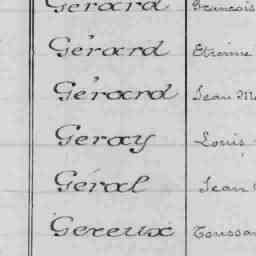 Gérard François
Gérard Etienne
Gérard Jean
Geray Louis
Géral Jean
Gereux Toussa